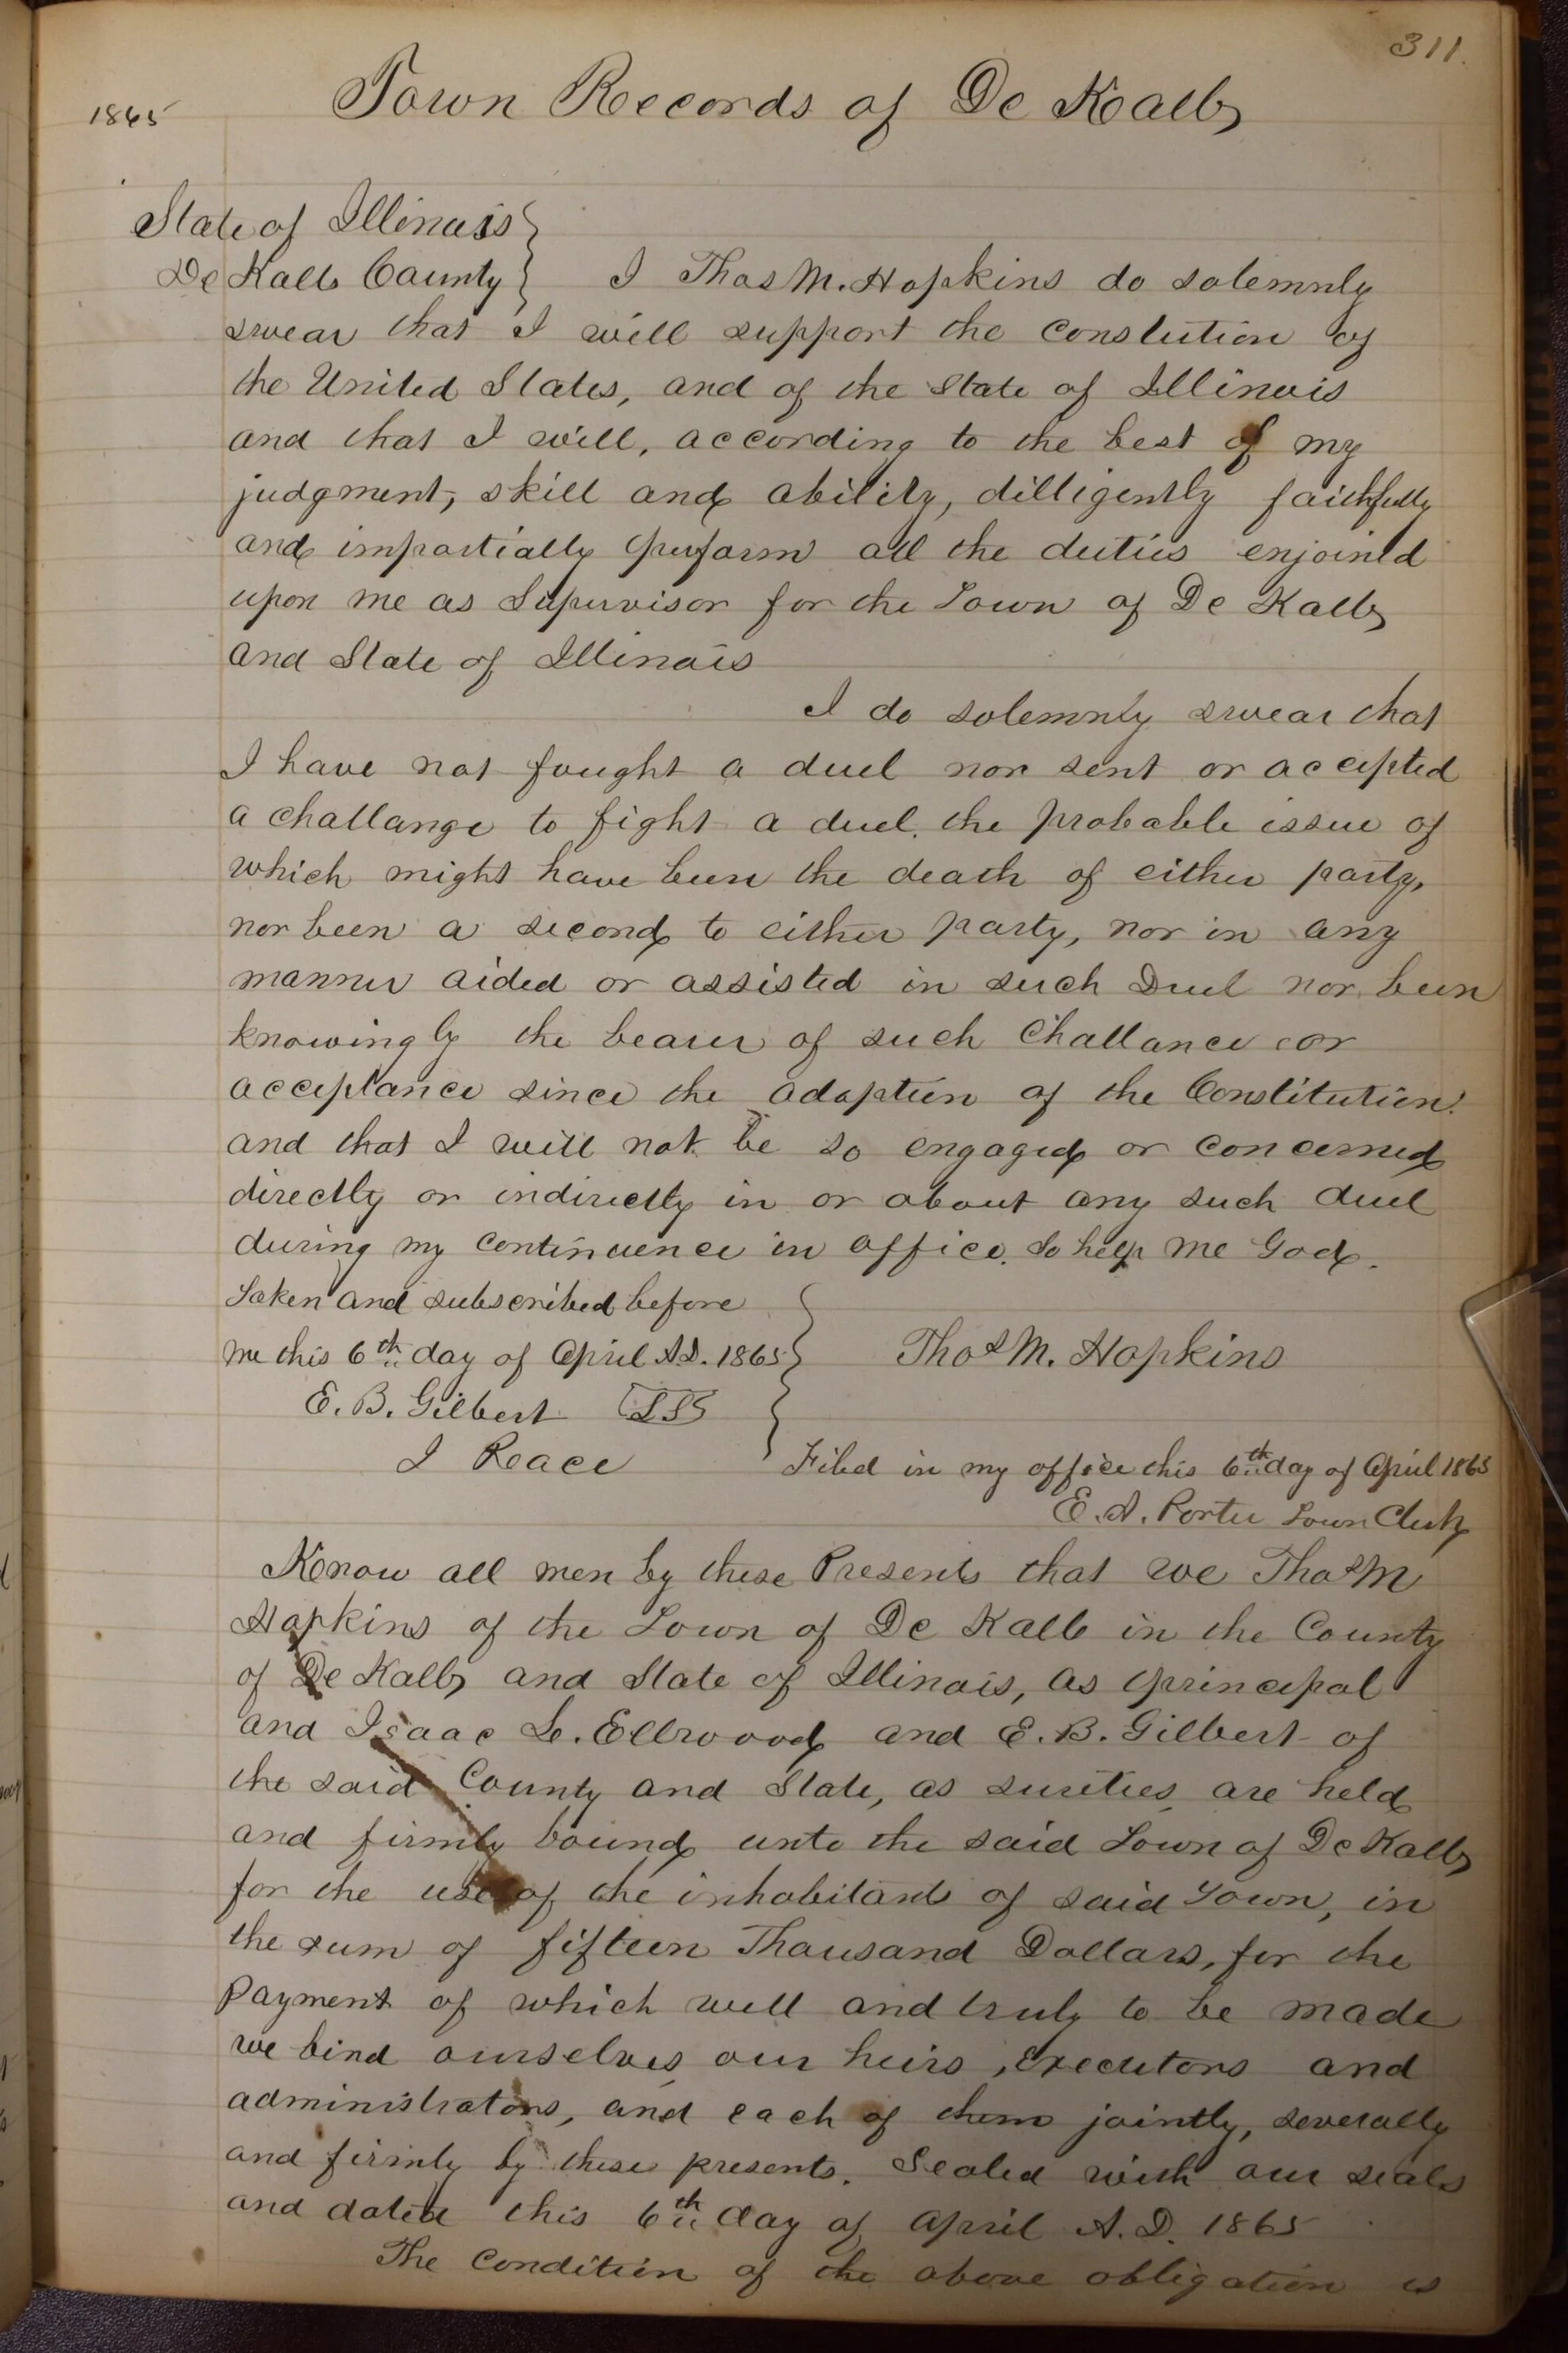 311.
1865
Town Records of De Kalb
State of Illinois }
De Kalb County } I Thos M. Hopkins do solemnly
swear that I will support the Constution of
the United States, and of the State of Illinois
and that I will, according to the best of my
judgment, skill and ability, dilligently faithfully
and impartially perform all the duties enjoined
upon me as Supervisor for the Town of De Kalb
and State of Illinois
I do solemnly swear that
I have not fought a duel nor sent or accepted
a challange to fight a duel, the probable issue of
which might have been the death of either party,
nor been a second to either party, nor in any
manner aided or assisted in such Duel nor been
knowingly the bearer of such Challance or
acceptance since the adoption of the Constitution.
and that I will not be so engaged or concerned
directly or indirectly in or about any such duel
during my continuence in office. So help me God.
Taken and subscribed before }
me this 6th day of April A.D. 1865 } Thos M. Hopkins
E. B. Gilbert LSS
J Peace Filed in my office this 6th day of April 1865
E. A. Porter Town Clerk
Know all men by these Presents that we Thos M
Hopkins of the Town of De Kalb in the County
of De Kalb and State of Illinois, as principal
and Isaac L. Ellwood and E. B. Gilbert of
the said County and State, as sureties, are held
and firmly bound unto the said Town of De Kalb
for the use of the inhabitants of said Town, in
the sum of fifteen Thousand Dollars, for the
Payment of which well and truly to be made
we bind ourselves, our heirs, Executors and
administrators, and each of them jointly, severally
and firmly by these presents. Sealed with our seals
and dated this 6th day of April A.D. 1865
The Condition of the above obligation is